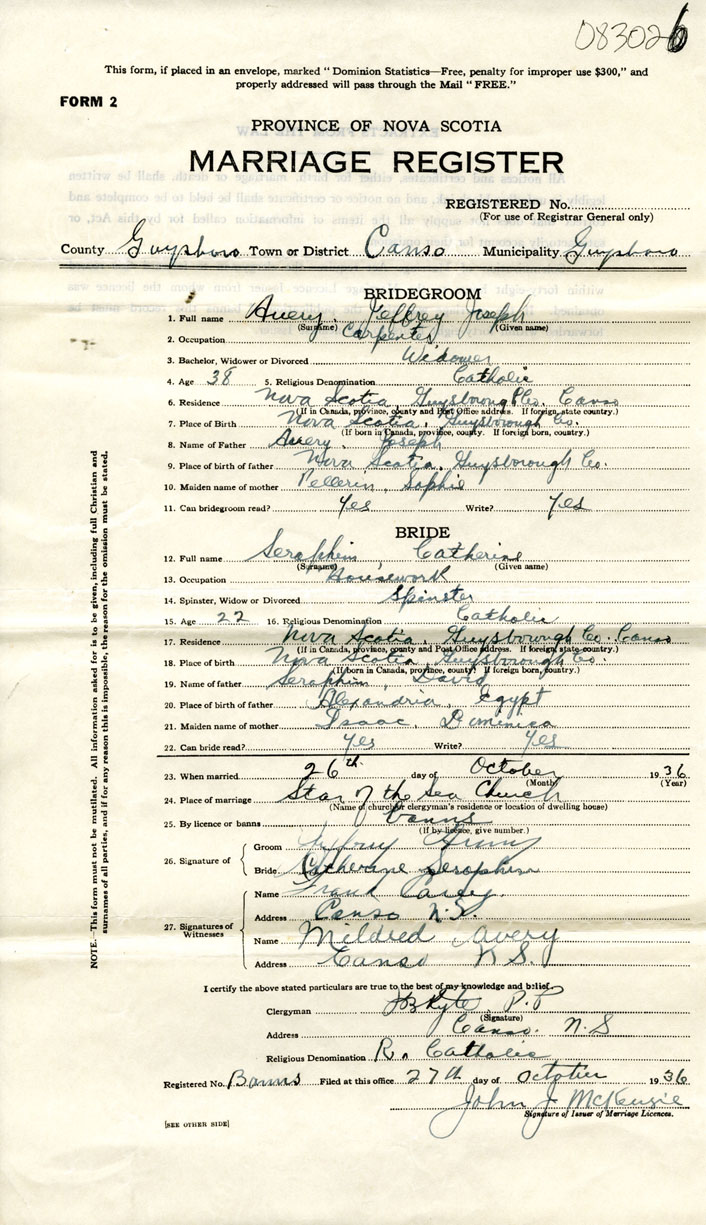 083026
This form, if placed in an envelope, marked " Dominion Statistics—Free, penalty for improper use $300," and
properly addressed will pass through the Mail " FREE."
FORM 2
PROVINCE OF NOVA SCOTIA
MARRIAGE REGISTER
REGISTERED No.
(For use of Registrar General only)
County Guysboro Town or District Canso Municipality Guysboro
BRIDEGROOM
1. Full name Avery, Jeffrey Joseph
(Surname) (Given name)
2. Occupation Carpenter
3. Bachelor, Widower or Divorced Widower
4. Age 38 5. Religious Denomination Catholic
6. Residence Nova Scotia Guysborough Co. Canso
(If in Canada, province, county and Post Office address. If foreign, state country.)
7. Place of Birth Nova Scotia, Guysborough Co.
(If born in Canada, province, county. If foreign born, country.)
8. Name of Father Avery, Joseph
9. Place of birth of father Nova Scotia, Guysborough Co.
10. Maiden name of mother Pellerin, Sophie
11. Can bridegroom read? Yes Write? Yes
BRIDE
12. Full name Seraphim, Catherine
(Surname) (Given name)
13. Occupation Housework
14. Spinster, Widow or Divorced Spinster
15. Age 22 16. Religious Denomination Catholic
17. Residence Nova Scotia, Guysborough Co. Canso
(If in Canada, province, county and Post Office address. If foreign, state country.)
18. Place of birth Nova Scotia, Guysborough Co.
(If born in Canada, province, county. If foreign born, country.)
19. Name of father Seraphim, David
20. Place of birth of father Alexandria, Egypt
21. Maiden name of mother Isaac, Dominica
22. Can bride read? Yes Write? Yes
23. When married 26th day of October 1936
(Month) (Year)
24. Place of marriage Star of the Sea Church
(Name of church or clergyman's residence or location of dwelling house)
25. By licence or banns banns
(If by licence, give number.)
26. Signature of
Groom
Bride Catherine Seraphim
27. Signatures of Witnesses
Name Frank
Address Canso N.S.
Name Mildred Avery
Address Canso N S.
I certify the above stated particulars are true to the best of my knowledge and belief.
Clergyman P.P
(Signature)
Address Canso. N.S
Religious Denomination R. Catholic
Registered No. Banns Filed at this office 27th day of October 1936
John J McKenzie
Signature of Issuer of Marriage Licences.
[SEE OTHER SIDE]
NOTE.—This form must not be mutilated. All information asked for is to be given, including full Christian and
surnames of all parties, and if for any reason this is impossible, the reason for the omission must be stated.